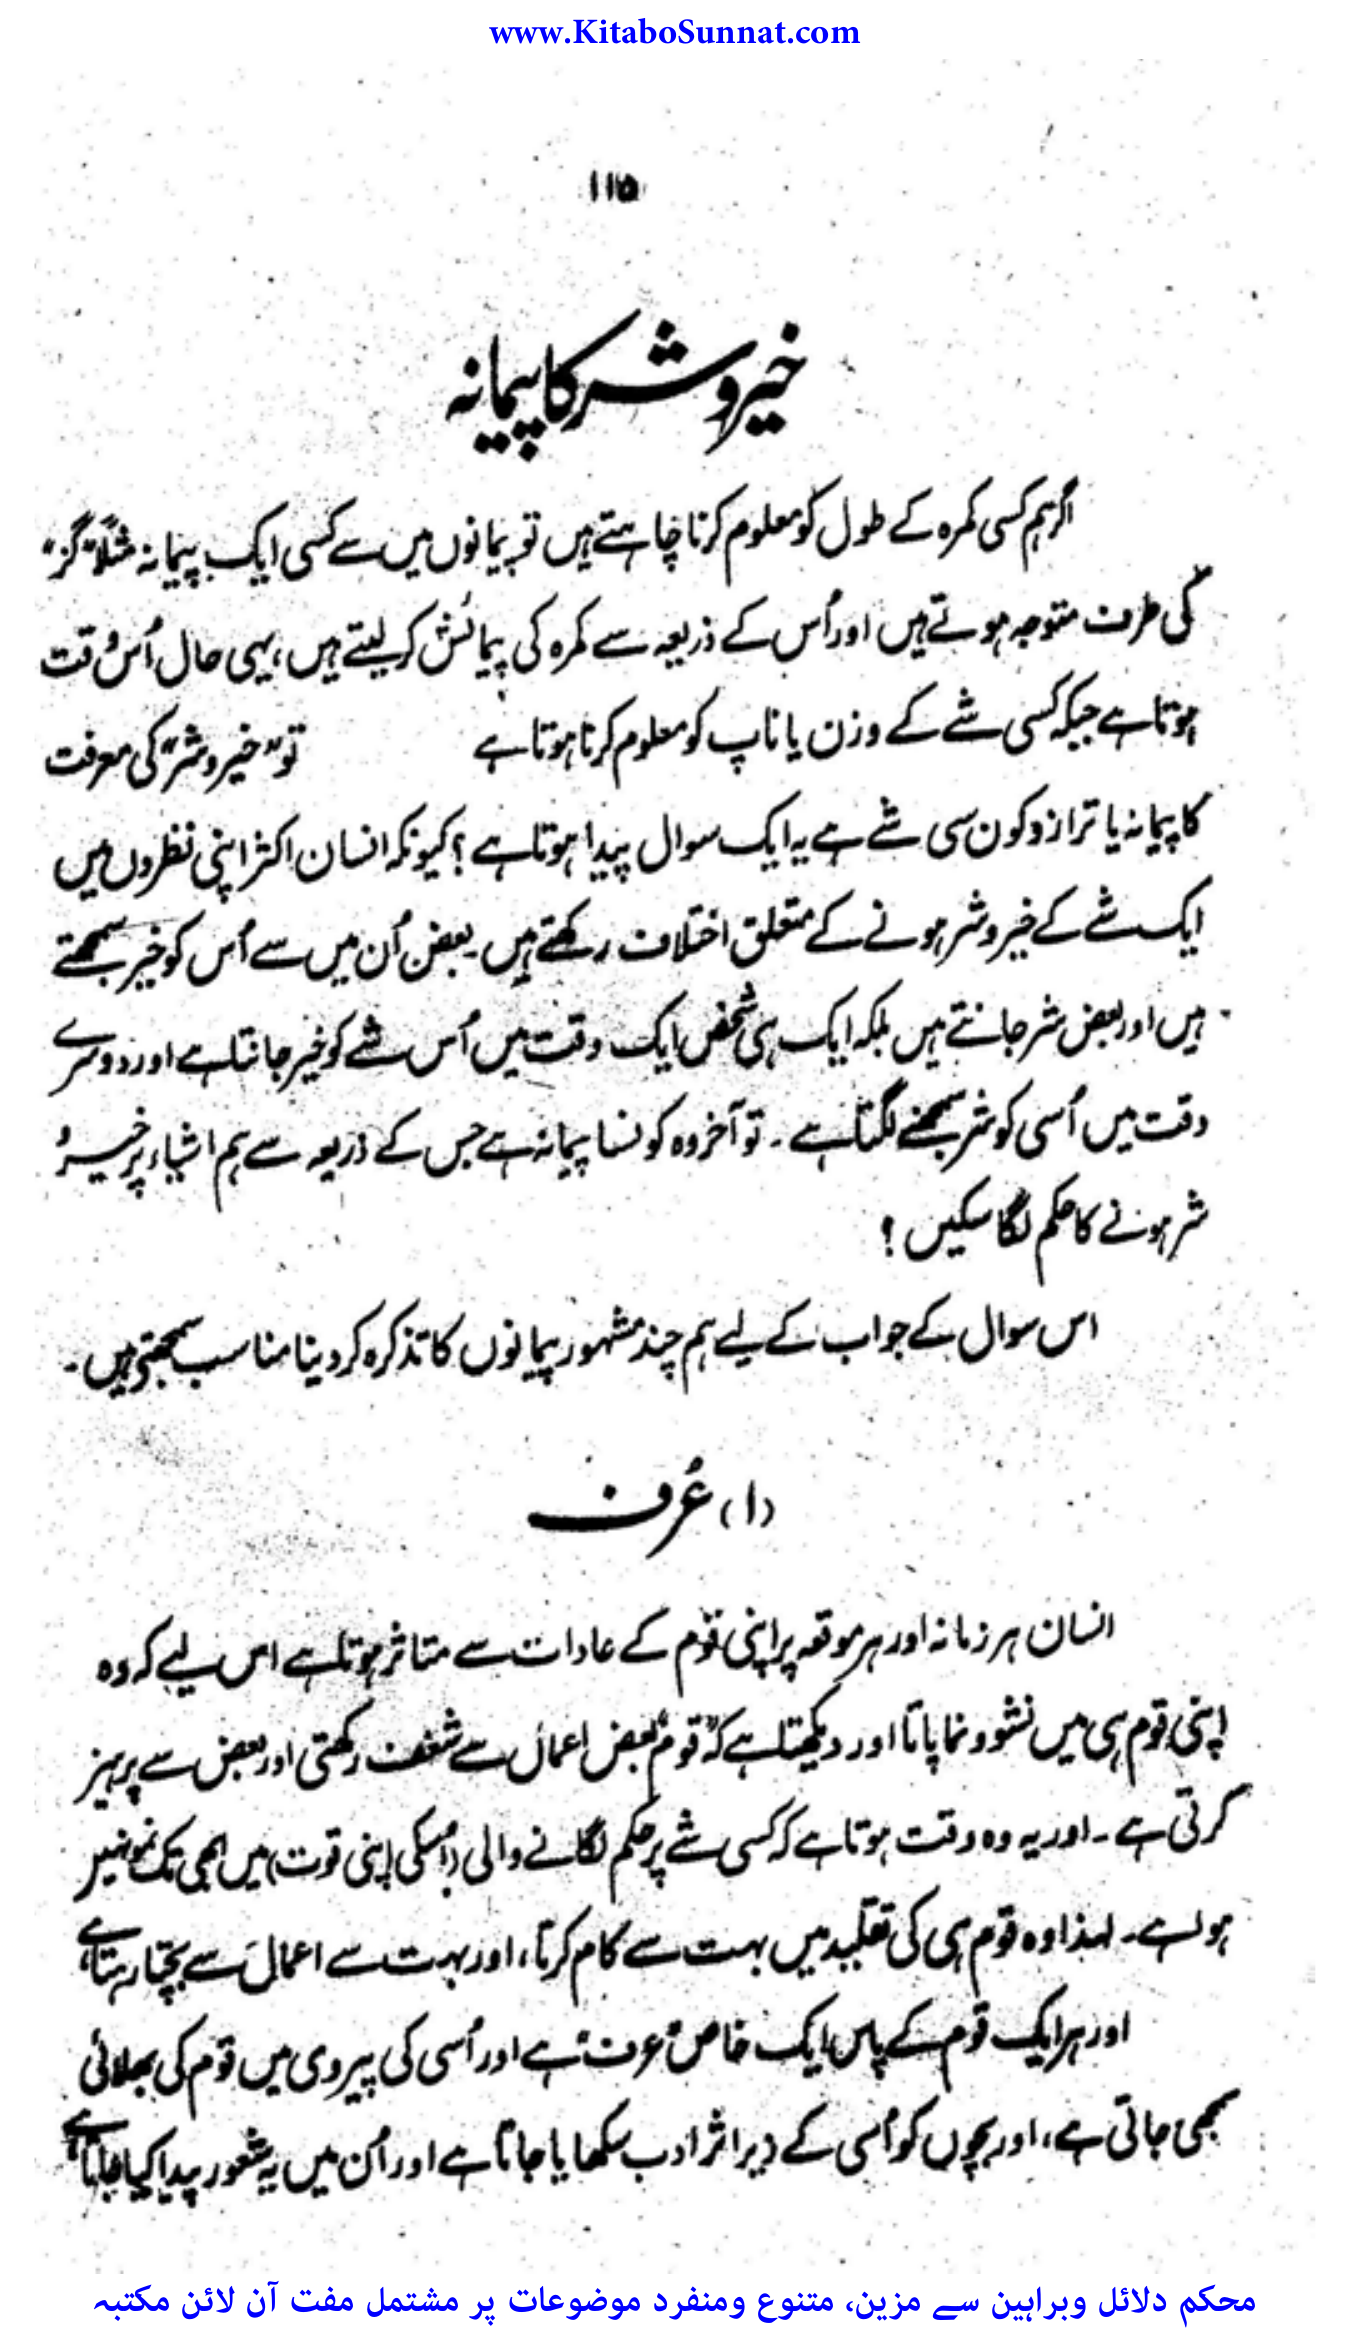 www.KitaboSunnat.com
۱۱۵
خیر و شر کا پیمانہ
اگر ہم کسی کمرہ کے طول کو معلوم کرنا چاہتے ہیں تو پیمانوں میں سے کسی ایک پیمانہ مثلاً "گز"
کی طرف متوجہ ہوتے ہیں اور اُس کے ذریعہ سے کمرہ کی پیمائش کر لیتے ہیں، یہی حال اُس وقت
ہوتا ہے جبکہ کسی شے کے وزن یا ناپ کو معلوم کرنا ہوتا ہے تو "خیر و شر" کی معرفت
کا پیمانہ یا ترازو کون سی شے ہے یہ ایک سوال پیدا ہوتا ہے؟ کیونکہ انسان اکثر اپنی نظروں میں
ایک شے کے خیر و شر ہونے کے متعلق اختلاف رکھتے ہیں۔ بعض اُن میں سے اُس کو خیر سمجھتے
ہیں اور بعض شر جانتے ہیں بلکہ ایک ہی شخص ایک وقت میں اُس شے کو خیر جانتا ہے اور دوسرے
وقت میں اُسی کو شر سمجھنے لگتا ہے۔ تو آخر وہ کونسا پیمانہ ہے جس کے ذریعہ سے ہم اشیاء پر خیر و
شر ہونے کا حکم لگا سکیں؟
اس سوال کے جواب کے لیے ہم چند مشہور پیمانوں کا تذکرہ کر دینا مناسب سمجھتے ہیں۔
(۱) عُرف
انسان ہر زمانہ اور ہر موقعہ پر اپنی قوم کے عادات سے متاثر ہوتا ہے اس لیے کہ وہ
اپنی قوم ہی میں نشو و نما پاتا اور دیکھتا ہے کہ "قوم" بعض اعمال سے شغف رکھتی اور بعض سے پرہیز
کرتی ہے۔ اور یہ وہ وقت ہوتا ہے کہ کسی شے پر حکم لگانے والی (اُسکی اپنی قوت) میں ابھی تک نمو نہیں
ہوا ہے۔ لہذا وہ قوم ہی کی تقلید میں بہت سے کام کرتا، اور بہت سے اعمال سے بچتا رہتا ہے
اور ہر ایک قوم کے پاس ایک خاص "عرف" ہے اور اُسی کی پیروی میں قوم کی بھلائی
سمجھی جاتی ہے، اور بچوں کو اُسی کے زیر اثر ادب سکھایا جاتا ہے اور اُن میں یہ شعور پیدا کیا جاتا ہے
محکم دلائل وبراہین سے مزین، متنوع ومنفرد موضوعات پر مشتمل مفت آن لائن مکتبہ